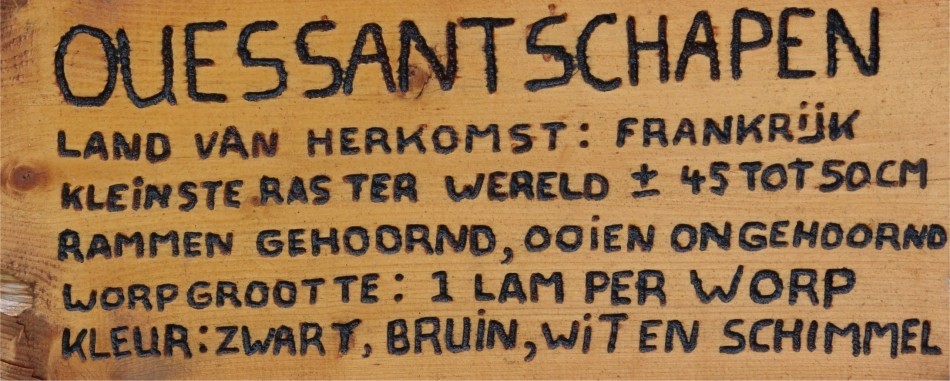 OUESSANTSCHAPEN
LAND VAN HERKOMST: FRANKRIJK
KLEiNSTE RAS TER WERELD ± 45 TOT 50 CM
RAMMEN GEHOORND, OOiEN ONGEHOORND
WORPGROOTTE: 1 LAM PER WORP
KLEUR: ZWART, BRUiN, WiT EN SCHiMMEL